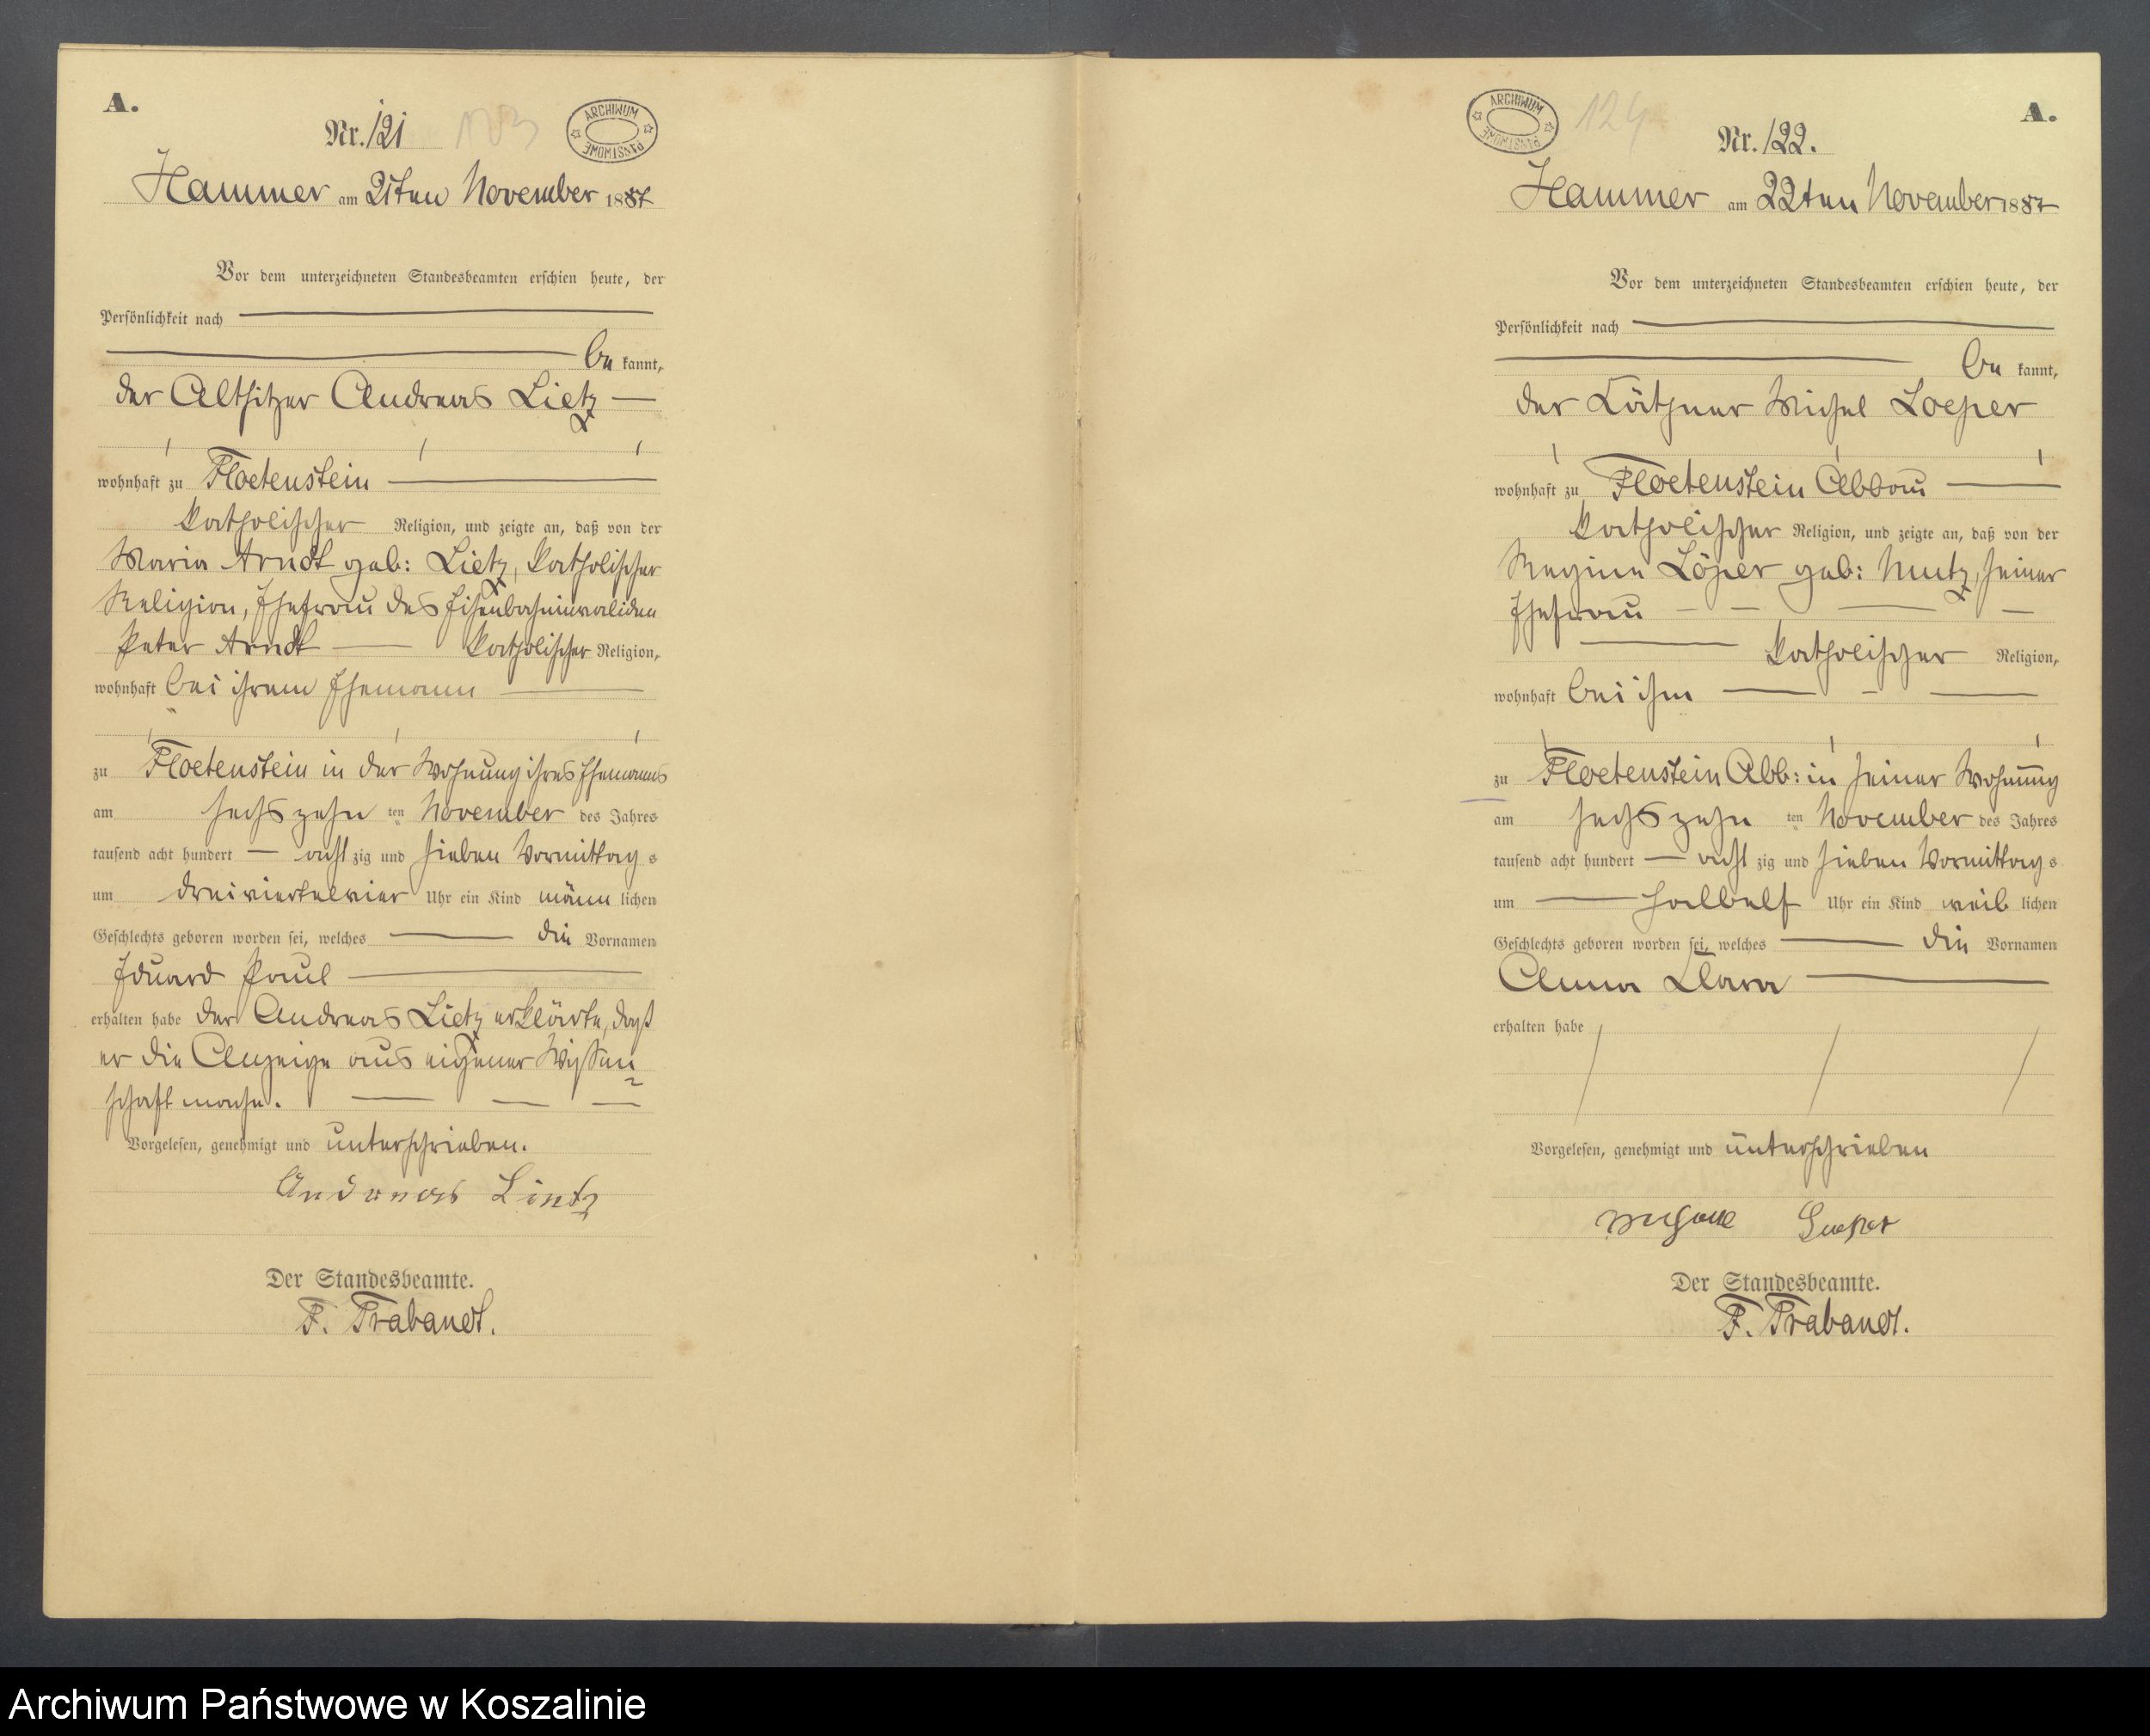 A.
Nr. 121
ARCHIWUM PAŃSTWOWE
Hammer am 21ten November 1887
Vor dem unterzeichneten Standesbeamten erschien heute, der
Persönlichkeit nach
be kannt,
der Altsitzer Andreas Lietz
wohnhaft zu Floetenstein
katholischer Religion, und zeigte an, daß von der
Maria Arndt geb: Lietz, katholischer
Religion, Ehefrau des Eisenbahninvaliden
Peter Arndt katholischer Religion,
wohnhaft bei ihrem Ehemann
zu Floetenstein in der Wohnung ihres Ehemanns
am sechszehn ten November des Jahres
tausend acht hundert acht zig und sieben Vormittag s
um dreiviertelvier Uhr ein Kind männ lichen
Geschlechts geboren worden sei, welches die Vornamen
Eduard Paul
erhalten habe der Andreas Lietz erklärte, daß
er die Anzeige aus eigener Wissen
schaft mache.
Vorgelesen, genehmigt und unterschrieben.
Andreas Lietz
Der Standesbeamte.
F. Trabandt.
ARCHIWUM PAŃSTWOWE
124
A.
Nr. 122.
Hammer am 22ten November 1887
Vor dem unterzeichneten Standesbeamten erschien heute, der
Persönlichkeit nach
be kannt,
der Käthner Michel Loeper
wohnhaft zu Floetenstein Abbau
katholischer Religion, und zeigte an, daß von der
Regine Löper geb: Mutz, seiner
Ehefrau
katholischer Religion,
wohnhaft bei ihm
zu Floetenstein Abb: in seiner Wohnung
am sechszehn ten November des Jahres
tausend acht hundert acht zig und sieben Vormittag s
um halbelf Uhr ein Kind weib lichen
Geschlechts geboren worden sei, welches die Vornamen
Anna Klara
erhalten habe
Vorgelesen, genehmigt und unterschrieben
Der Standesbeamte.
F. Trabandt.
Archiwum Państwowe w Koszalinie